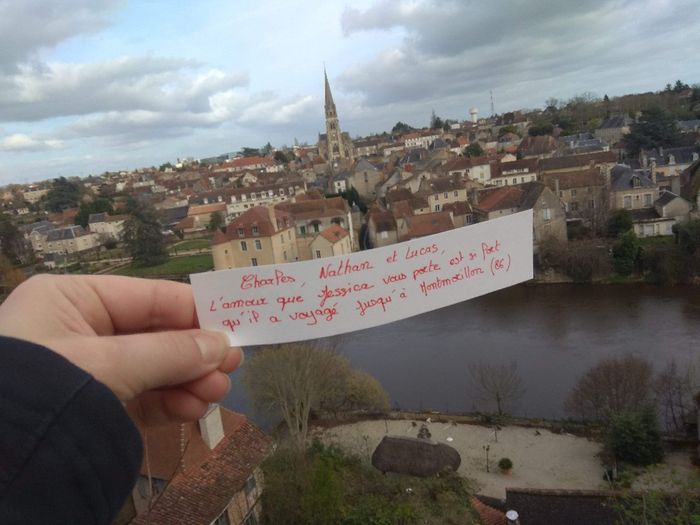 Charles, Nathan et Lucas,
L'amour que Jessica vous porte est si fort
qu'il a voyagé jusqu'à Montmorillon (86)